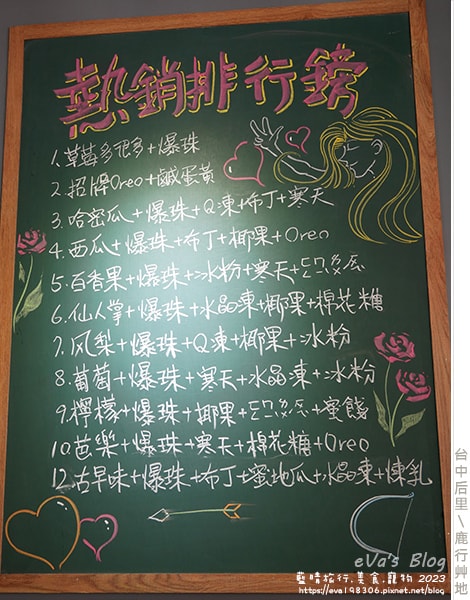 熱銷排行鎊
1.草莓多很多+爆珠
2.招牌Oreo+鹹蛋黃
3.哈密瓜+爆珠+Q凍+布丁+寒天
4.西瓜+爆珠+布丁+椰果+Oreo
5.百香果+爆珠+冰粉+寒天+
6.仙人掌+爆珠+水晶凍+椰果+棉花糖
7.凤梨+爆珠+Q凍+椰果+冰粉
8.葡萄+爆珠+寒天+水晶凍+冰粉
9.檸檬+爆珠+椰果+ +蜜餞
10.芭樂+爆珠+寒天+棉花糖+Oreo
12.古早味+爆珠+布丁+蜜地瓜+水晶凍+煉乳
台中后里\鹿行艸地
eVa's Blog
藍晴旅行.美食.寵物 2023
https://eva198306.pixnet.net/blog